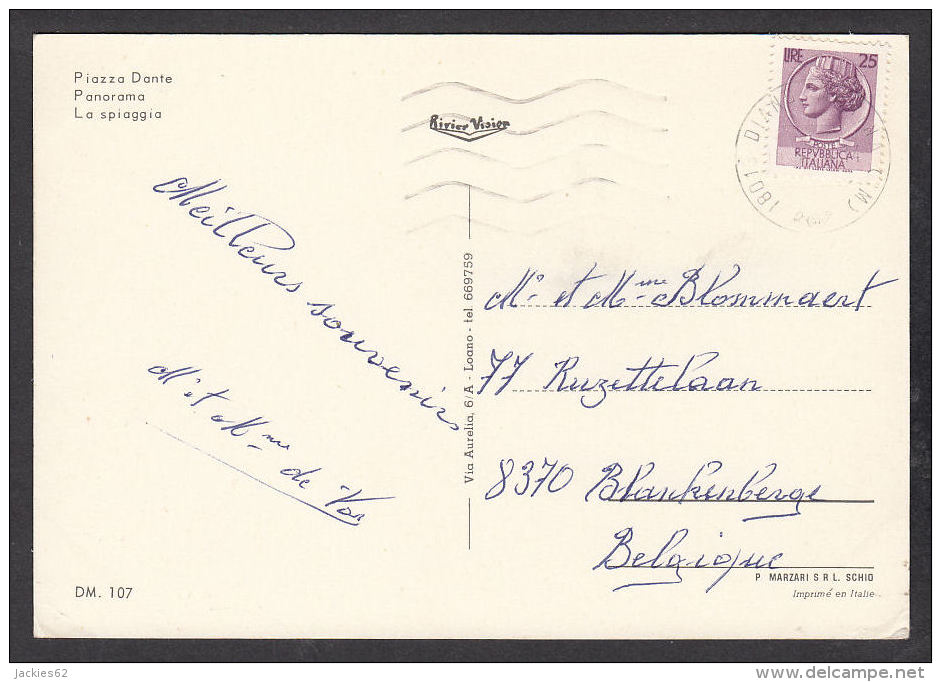 Piazza Dante
Panorama
La spiaggia
Rivier Vision
LIRE 25
POSTE
REPVBBLICA
ITALIANA
Meilleurs souvenirs
Mr et Mme de Vos
Via Aurelia, 6/A - Loano - tel. 669759
Mr et Mme Blommaert
77 Ruzettelaan
8370 Blankenberge
Belgique
P. MARZARI S R L. SCHIO
Imprimé en Italie
DM. 107
jackies62
www.delcampe.net